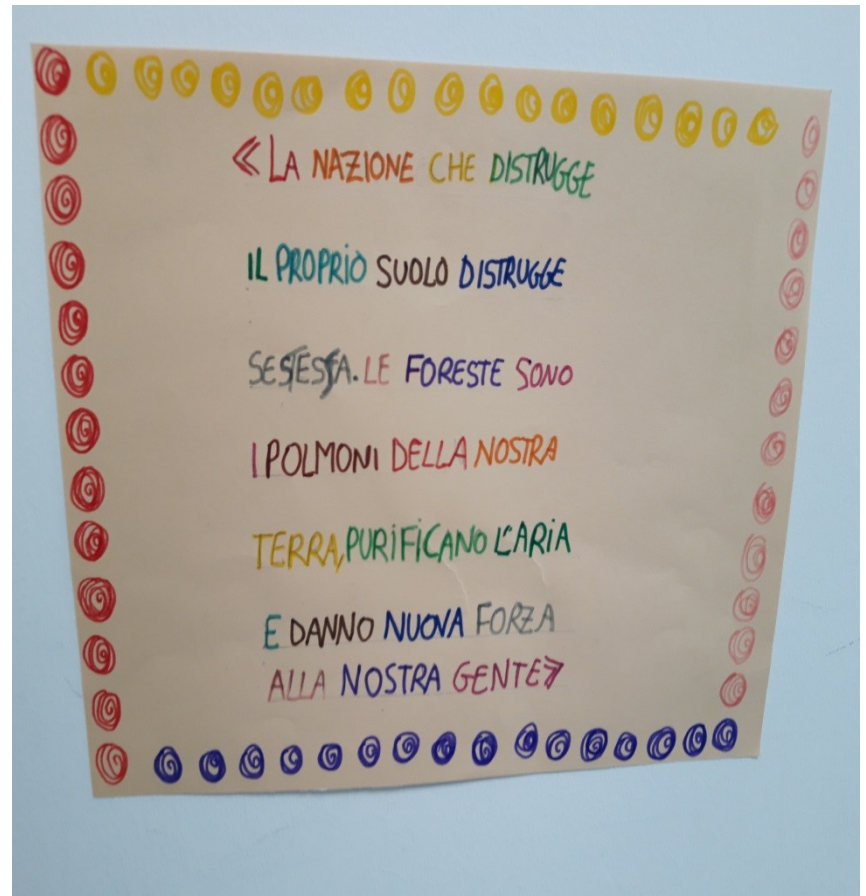 «LA NAZIONE CHE DISTRUGGE
IL PROPRIO SUOLO DISTRUGGE
SE STESSA. LE FORESTE SONO
I POLMONI DELLA NOSTRA
TERRA, PURIFICANO L'ARIA
E DANNO NUOVA FORZA
ALLA NOSTRA GENTE»